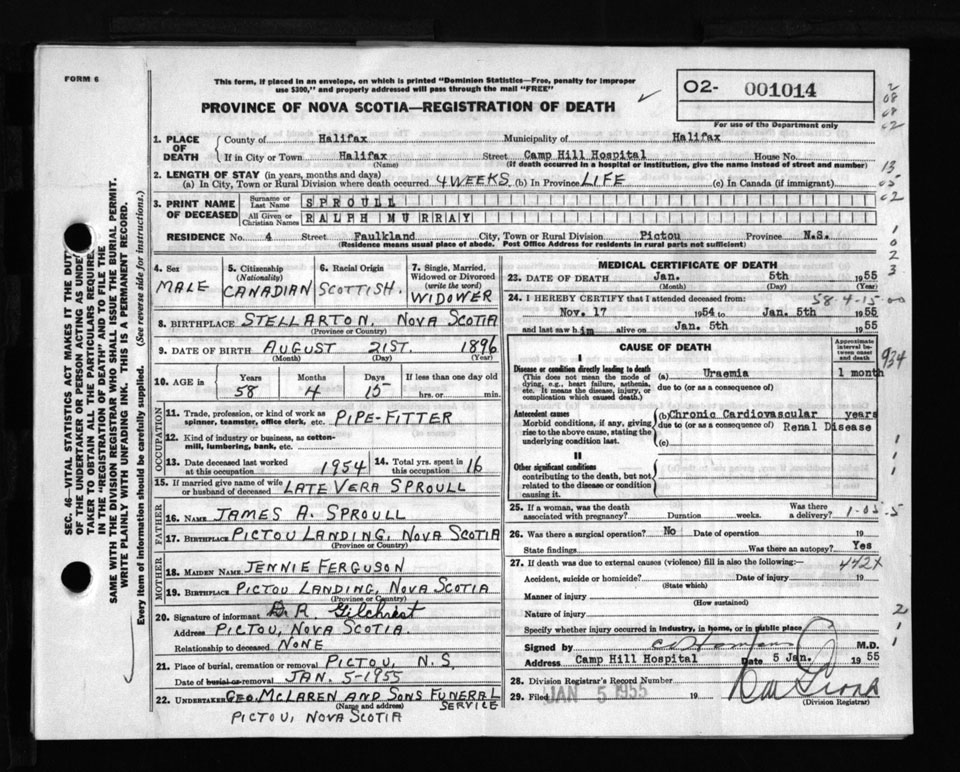 FORM 6
This form, if placed in an envelope, on which is printed "Dominion Statistics—Free, penalty for improper
use $300," and properly addressed will pass through the mail "FREE"
PROVINCE OF NOVA SCOTIA—REGISTRATION OF DEATH
O2- 001014
For use of the Department only
2
08
08
02
13
05
02
1
0
2
3
SEC. 46—VITAL STATISTICS ACT MAKES IT THE DUTY
OF THE UNDERTAKER OR PERSON ACTING AS UNDER
TAKER TO OBTAIN ALL THE PARTICULARS REQUIRE
IN THE "REGISTRATION OF DEATH" AND TO FILE THE
SAME WITH THE DIVISION REGISTRAR WHO SHALL ISSUE THE BURIAL PERMIT.
WRITE PLAINLY WITH UNFADING INK. THIS IS A PERMANENT RECORD.
Every item of information should be carefully supplied. (See reverse side for instructions.)
1. PLACE OF DEATH
County of Halifax Municipality of Halifax
If in City or Town Halifax Street Camp Hill Hospital House No.
(Name) (If death occurred in a hospital or institution, give the name instead of street and number)
2. LENGTH OF STAY (in years, months and days)
(a) In City, Town or Rural Division where death occurred 4 WEEKS (b) In Province LIFE (c) In Canada (if immigrant)
3. PRINT NAME OF DECEASED
Surname or Last Name SPROULL
All Given or Christian Names RALPH MURRAY
RESIDENCE No. 4 Street Faulkland City, Town or Rural Division Pictou Province N.S.
(Residence means usual place of abode. Post Office Address for residents in rural parts not sufficient)
4. Sex
MALE
5. Citizenship
(Nationality)
CANADIAN
6. Racial Origin
SCOTTISH.
7. Single, Married,
Widowed or Divorced
(write the word)
WIDOWER
8. BIRTHPLACE STELLARTON, NOVA SCOTIA
(Province or Country)
9. DATE OF BIRTH AUGUST 21ST. 1896
(Month) (Day) (Year)
10. AGE in Years Months Days If less than one day old
58 4 15 hrs. or min.
OCCUPATION
11. Trade, profession, or kind of work as
spinner, teamster, office clerk, etc. PIPE-FITTER
12. Kind of industry or business, as cotton-
mill, lumbering, bank, etc.
13. Date deceased last worked
at this occupation 1954
14. Total yrs. spent in
this occupation 16
15. If married give name of wife
or husband of deceased LATE VERA SPROULL
FATHER
16. NAME JAMES A. SPROULL
17. BIRTHPLACE PICTOU LANDING, NOVA SCOTIA
(Province or Country)
MOTHER
18. MAIDEN NAME JENNIE FERGUSON
19. BIRTHPLACE PICTOU LANDING, NOVA SCOTIA
(Province or Country)
20. Signature of informant R. Gilchrist
Address PICTOU, NOVA SCOTIA.
Relationship to deceased NONE
21. Place of burial, cremation or removal PICTOU, N.S.
Date of burial or removal JAN. 5-1955
22. UNDERTAKER GEO. MCLAREN AND SONS FUNERAL
(Name and address) SERVICE
PICTOU, NOVA SCOTIA
MEDICAL CERTIFICATE OF DEATH
23. DATE OF DEATH Jan. 5th 1955
(Month) (Day) (Year)
58-4-15-00
24. I HEREBY CERTIFY that I attended deceased from:
Nov. 17 1954 to Jan. 5th 1955
and last saw him alive on Jan. 5th 1955
CAUSE OF DEATH
Approximate
interval be-
tween onset
and death
934
I
Disease or condition directly leading to death
(This does not mean the mode of
dying, e.g., heart failure, asthenia,
etc. It means the disease, injury, or
complication which caused death.)
(a) Uraemia 1 month
due to (or as a consequence of)
Antecedent causes
Morbid conditions, if any, giving
rise to the above cause, stating the
underlying condition last.
(b) Chronic Cardiovascular years
due to (or as a consequence of) Renal Disease
(c)
II
Other significant conditions
contributing to the death, but not
related to the disease or condition
causing it.
1
1
25. If a woman, was the death
associated with pregnancy? Duration weeks. Was there
a delivery?
1-05-5
26. Was there a surgical operation? No Date of operation 19
State findings Was there an autopsy? Yes
27. If death was due to external causes (violence) fill in also the following:—
442X
Accident, suicide or homicide? Date of injury 19
(State which)
Manner of injury
(How sustained)
Nature of injury
2
1
1
Specify whether injury occurred in industry, in home, or in public place
Signed by M.D.
Address Camp Hill Hospital Date 5 Jan. 1955
28. Division Registrar's Record Number
29. Filed JAN 5 1955 19
(Division Registrar)